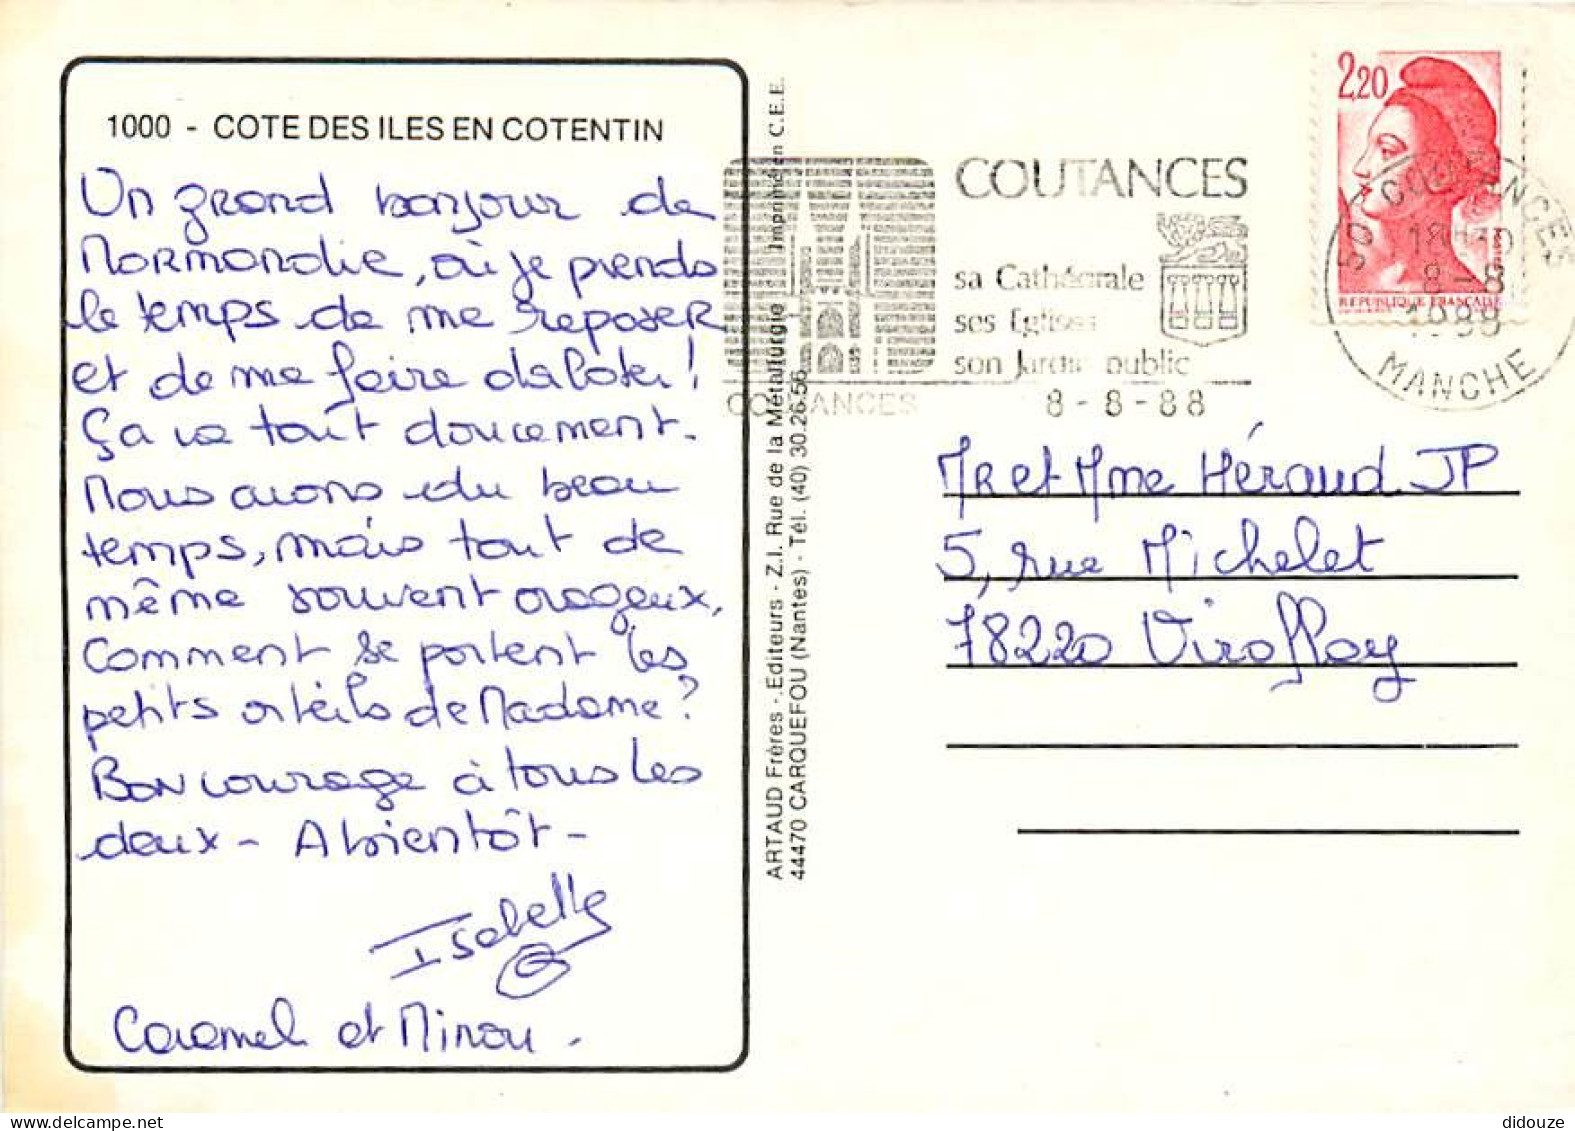 1000 - COTE DES ILES EN COTENTIN
Un grand bonjour de
Normandie, où je prends
le temps de me reposer
et de me faire dorloter !
Ça va tout doucement.
Nous avons du beau
temps, mais tout de
même souvent orageux.
Comment se portent les
petits orteils de Madame ?
Bon courage à tous les
deux - A bientôt -
Isabelle
Caramel et Minou .
ARTAUD Frères - Editeurs - Z.I. Rue de la Métallurgie Imprimé en C.E.E.
44470 CARQUEFOU (Nantes) - Tél. (40) 30.26.56
COUTANCES
COUTANCES
sa Cathédrale
ses Eglises
son Jardin public
8 - 8 - 88
2,20
REPUBLIQUE FRANÇAISE
50 COUTANCES
8 - 8
1988
MANCHE
Mr et Mme Héraud JP
5, rue Michelet
78220 Viroflay
didouze